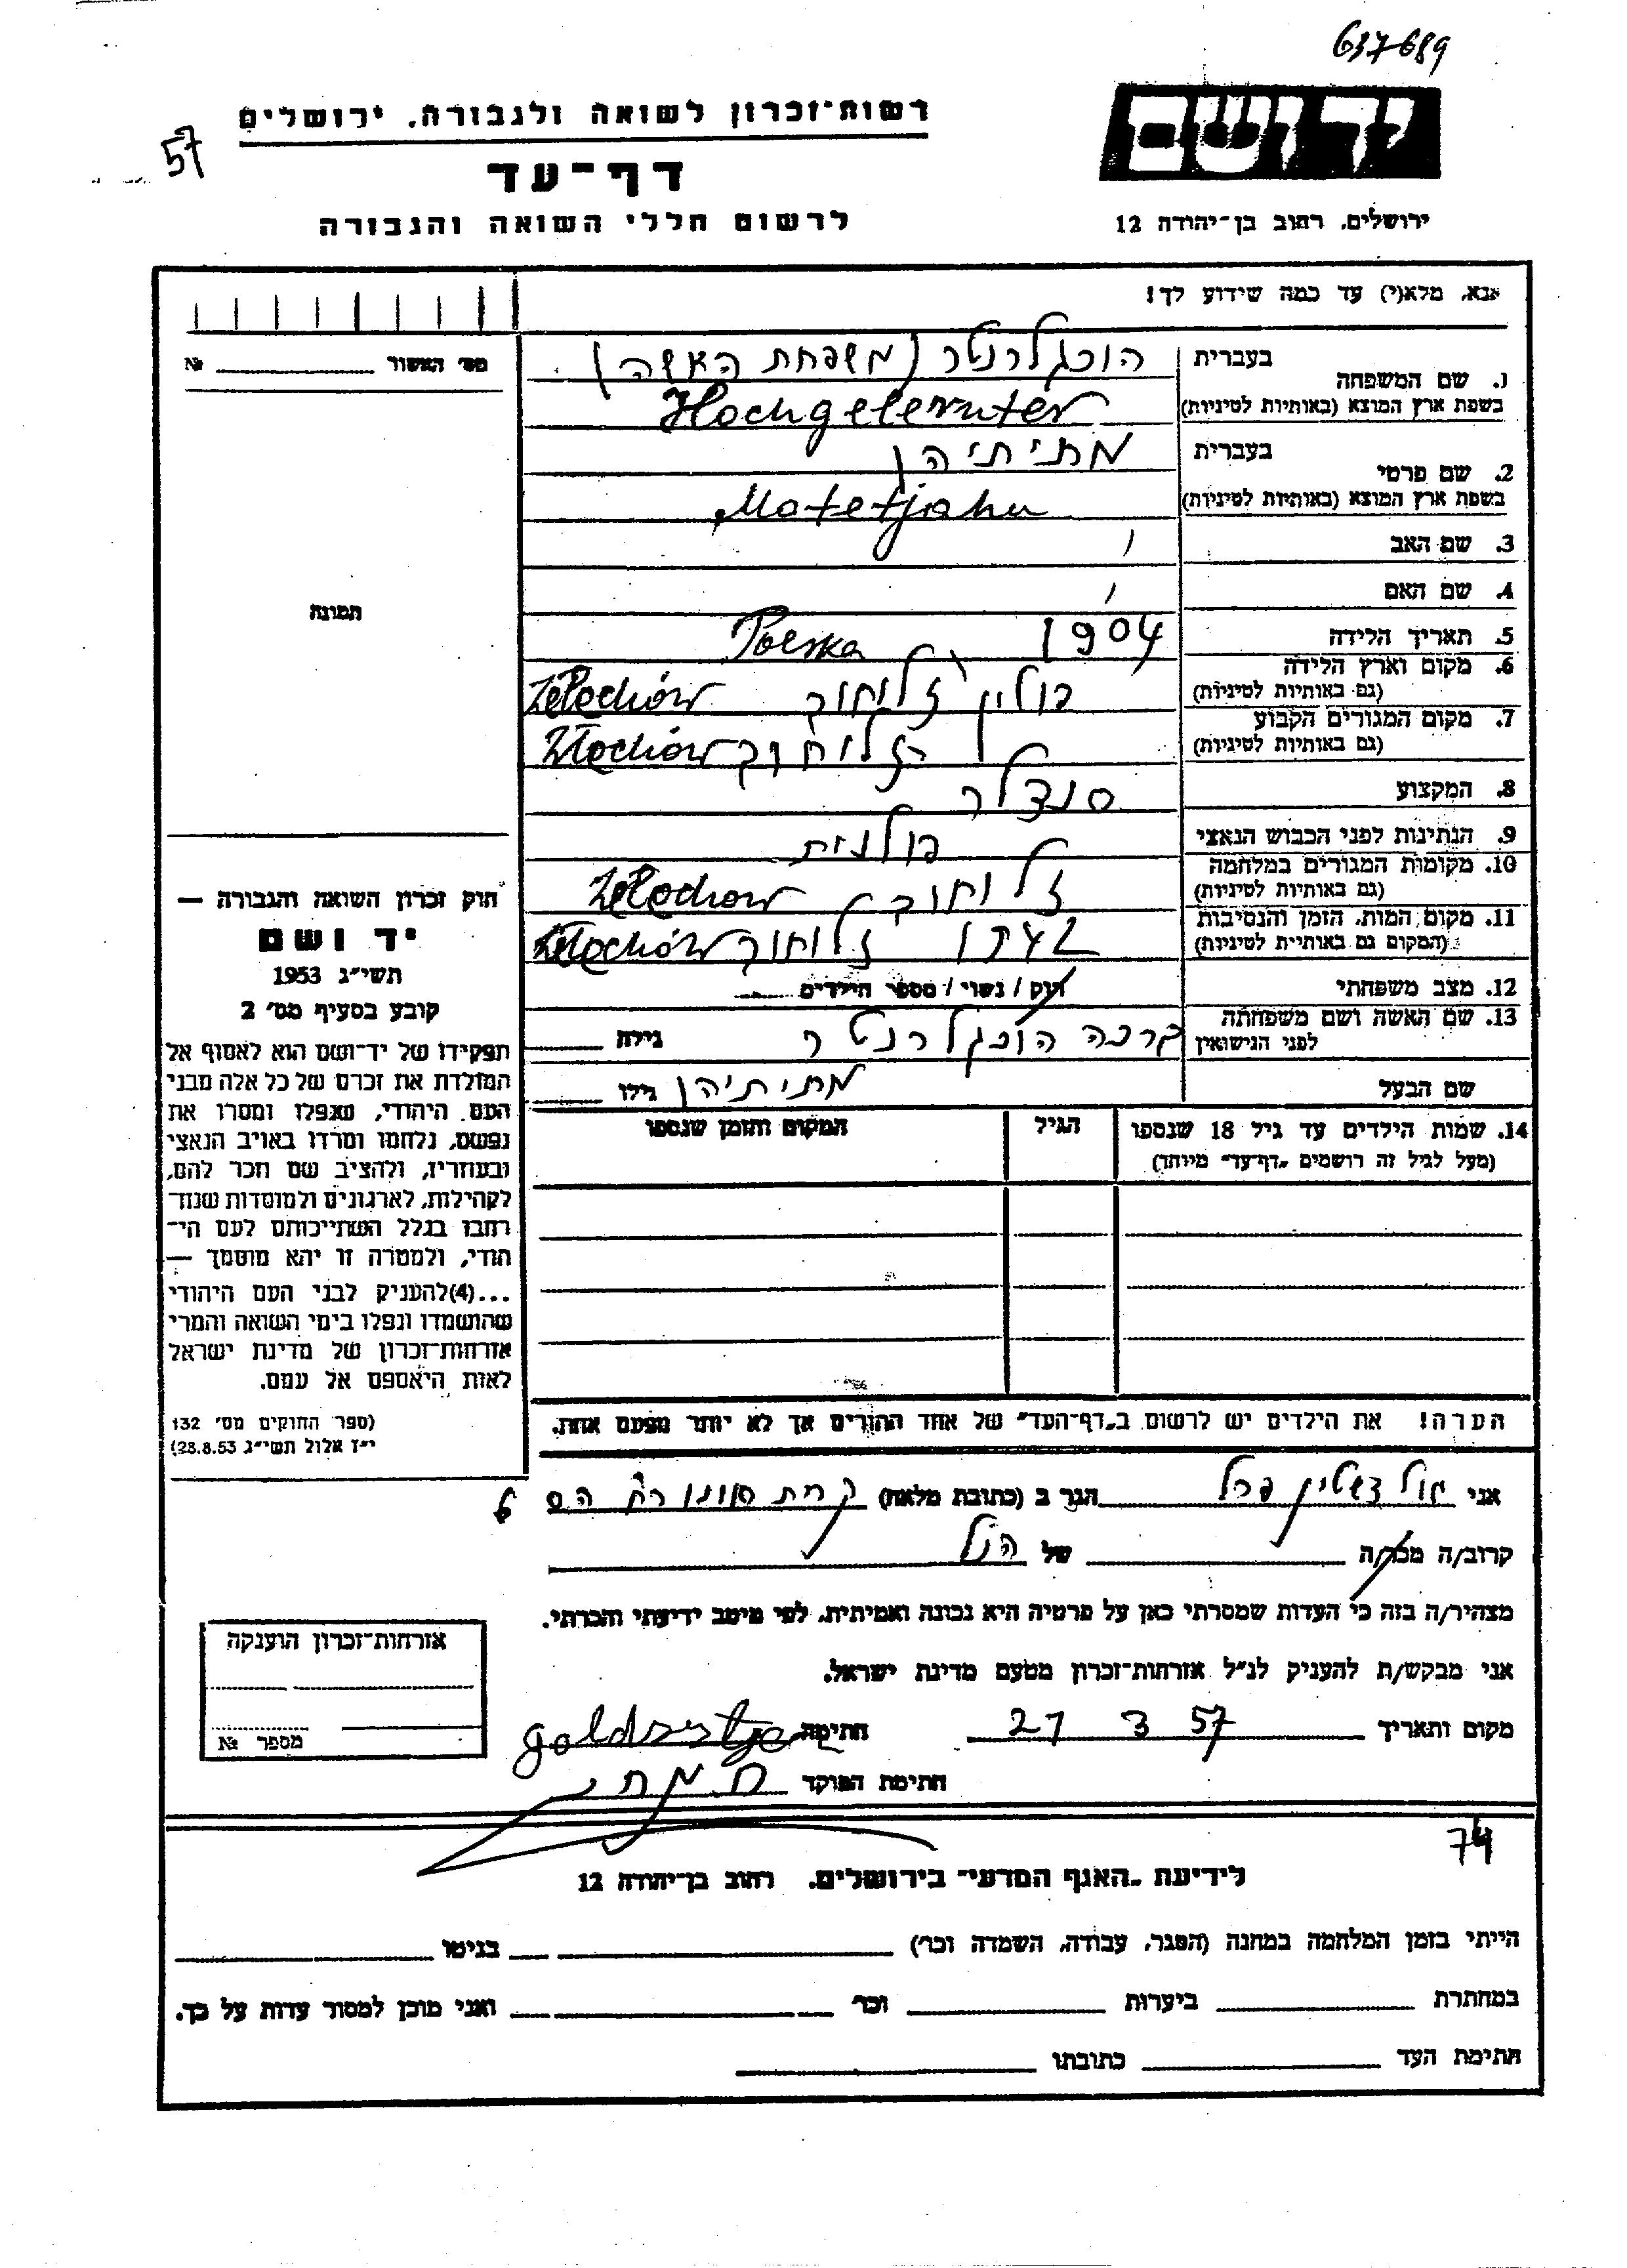 637689
יד ושם
רשות־זכרון לשואה ולגבורה, ירושלים
57
דף־עד
לרשום חללי השואה והגבורה
ירושלים, רחוב בן־יהודה 12
אנא, מלא(י) עד כמה שידוע לך!
מס׳ האשור № 
1. שם המשפחה בעברית הוכגלרנטר (משפחת האשה)
בשפת ארץ המוצא (באותיות לטיניות) Hochgelernter
2. שם פרטי בעברית מתיתיהו
בשפת ארץ המוצא (באותיות לטיניות) Matetjahu
3. שם האב
4. שם האם
תמונה
5. תאריך הלידה 1904 Polska
6. מקום וארץ הלידה
(גם באותיות לטיניות) פולין זלוחוב Żelechów
7. מקום המגורים הקבוע
(גם באותיות לטיניות) זלוחוב
8. המקצוע סנדלר
9. הנתינות לפני הכבוש הנאצי פולנית
10. מקומות המגורים במלחמה
(גם באותיות לטיניות) זלוחוב Żelechow
11. מקום המות, הזמן והנסיבות
(המקום גם באותיות לטיניות) 1942 זלוחוב
12. מצב משפחתי רוק / נשוי / מספר הילדים
13. שם האשה ושם משפחתה
לפני הנישואין ברכה הוכגלרנטר גילה
שם הבעל מתיתיהו גילו
14. שמות הילדים עד גיל 18 שנספו הגיל המקום והזמן שנספו
(מעל לגיל זה רושמים „דף־עד” מיוחד)
חוק זכרון השואה והגבורה —
יד ושם
תשי״ג 1953
קובע בסעיף מס׳ 2
תפקידו של יד־ושם הוא לאסוף אל
המולדת את זכרם של כל אלה מבני
העם היהודי, שנפלו ומסרו את
נפשם, נלחמו ומרדו באויב הנאצי
ובעוזריו, ולהציב שם וזכר להם,
לקהילות, לארגונים ולמוסדות שנח־
רבו בגלל השתייכותם לעם הי־
הודי, ולמטרה זו יהא מוסמך —
...(4) להעניק לבני העם היהודי
שהושמדו ונפלו בימי השואה והמרי
אזרחות־זכרון של מדינת ישראל
לאות היאספם אל עמם.
(ספר החוקים מס׳ 132
י״ז אלול תשי״ג 28.8.53)
הערה! את הילדים יש לרשום ב„דף־העד” של אחד ההורים אך לא יותר מפעם אחת.
אני גולדשטין פרל הגר ב (כתובת מלאה) קרית אונו
קרוב/ה מכר/ה של הנ״ל
מצהיר/ה בזה כי העדות שמסרתי כאן על פרטיה היא נכונה ואמיתית, לפי מיטב ידיעתי והכרתי.
אני מבקש/ת להעניק לנ״ל אזרחות־זכרון מטעם מדינת ישראל.
מקום ותאריך 27 3 57 חתימה
חתימת הפוקד
אזרחות־זכרון הוענקה
מספר №
74
לידיעת „האגף המדעי” בירושלים, רחוב בן־יהודה 12
הייתי בזמן המלחמה במחנה (הסגר, עבודה, השמדה וכו׳) בגיטו
במחתרת ביערות וכו׳ ואני מוכן למסור עדות על כך.
חתימת העד כתובתו